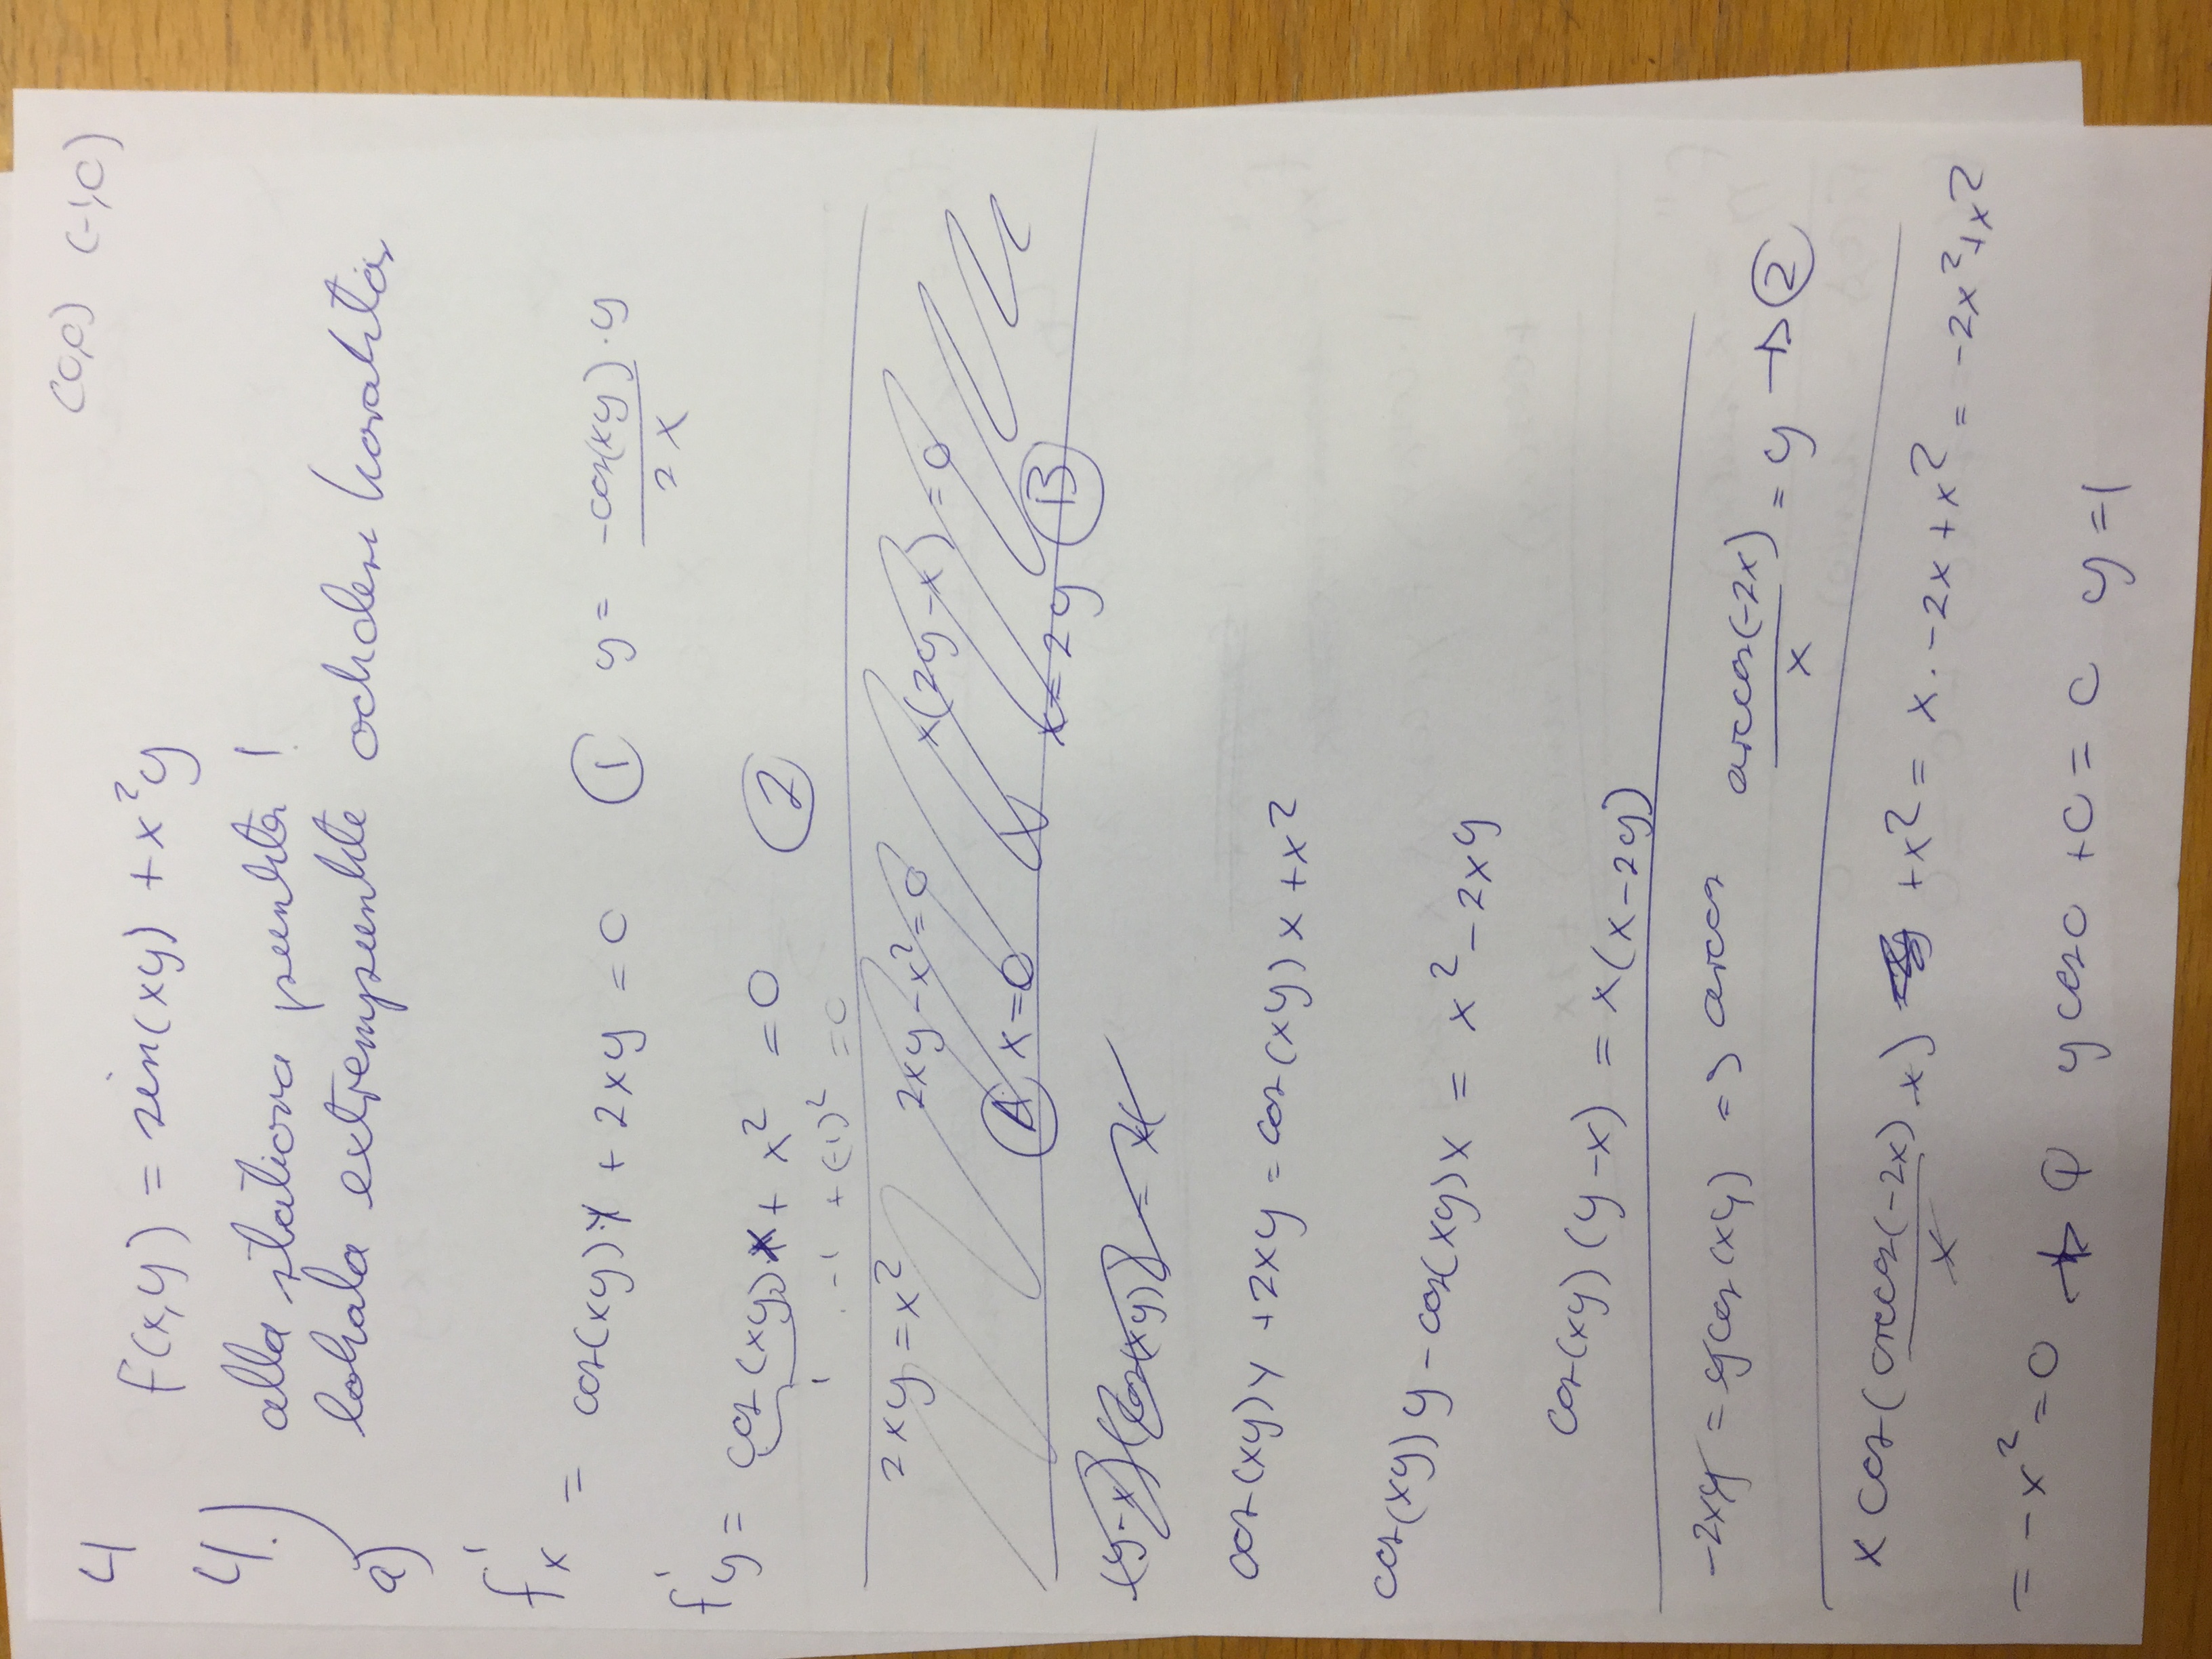 (0,0) (-1,0)
4
f(x,y) = sin(xy) + x²y
4.)
alla stationa punkter !
a)
lokala extrempunkte och deras karaktär
f'x = cos(xy)·y + 2xy = 0 ① y = -cos(xy)·y / 2x
f'y = cos(xy)·x + x² = 0 ②
1 · -1 + (-1)² = 0
2xy = x² 2xy - x² = 0 x(2y-x) = 0
Ⓐ x=0 x = 2y Ⓑ
cos(xy)y + 2xy = cos(xy)x + x²
cos(xy)y - cos(xy)x = x² - 2xy
cos(xy)(y-x) = x(x-2y)
-2xy = y cos(xy) => arccos arccos(-2x) / x = y → ②
x cos(arccos(-2x) / x · x) + x² = x · -2x + x² = -2x² + x²
= -x² = 0 → ① y cos 0 + 0 = 0 y = 1